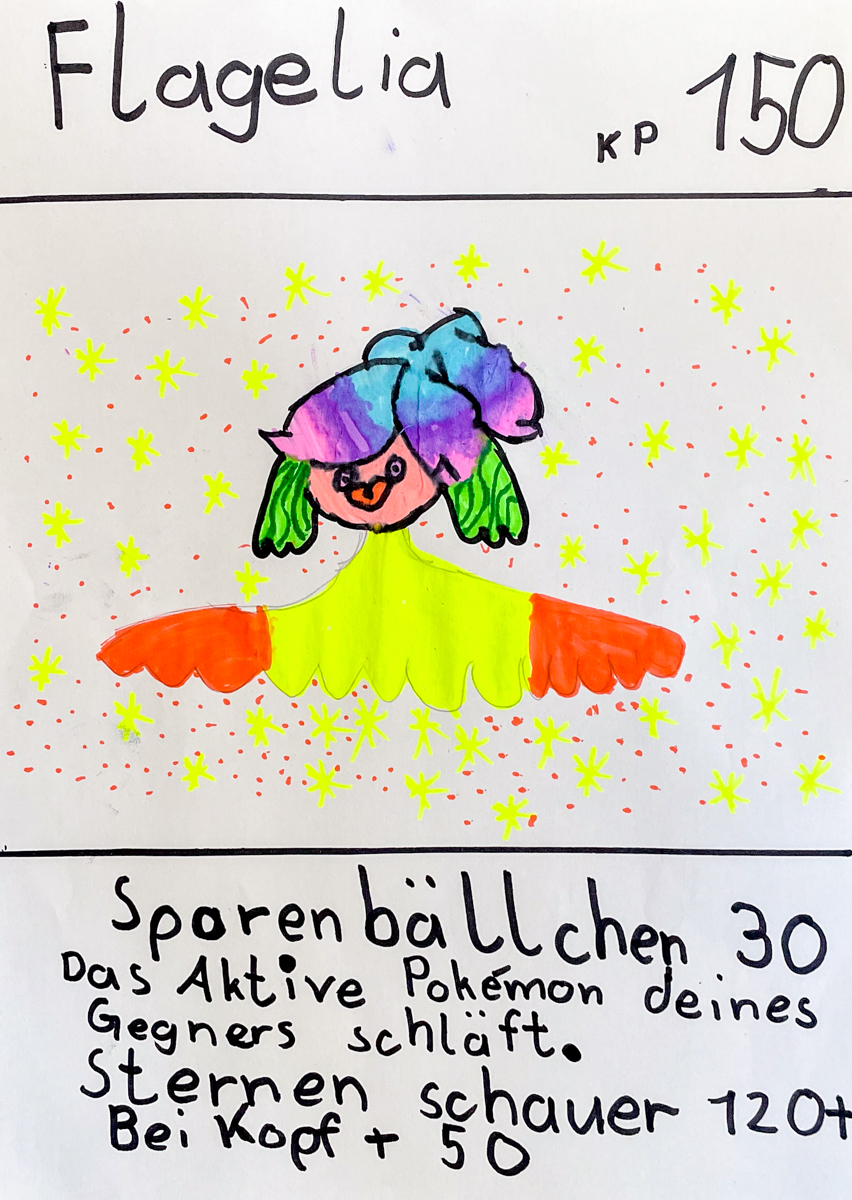 Flagelia
KP 150
Sporenbällchen 30
Das Aktive Pokémon deines
Gegners schläft.
Sternenschauer 120+
Bei Kopf + 50